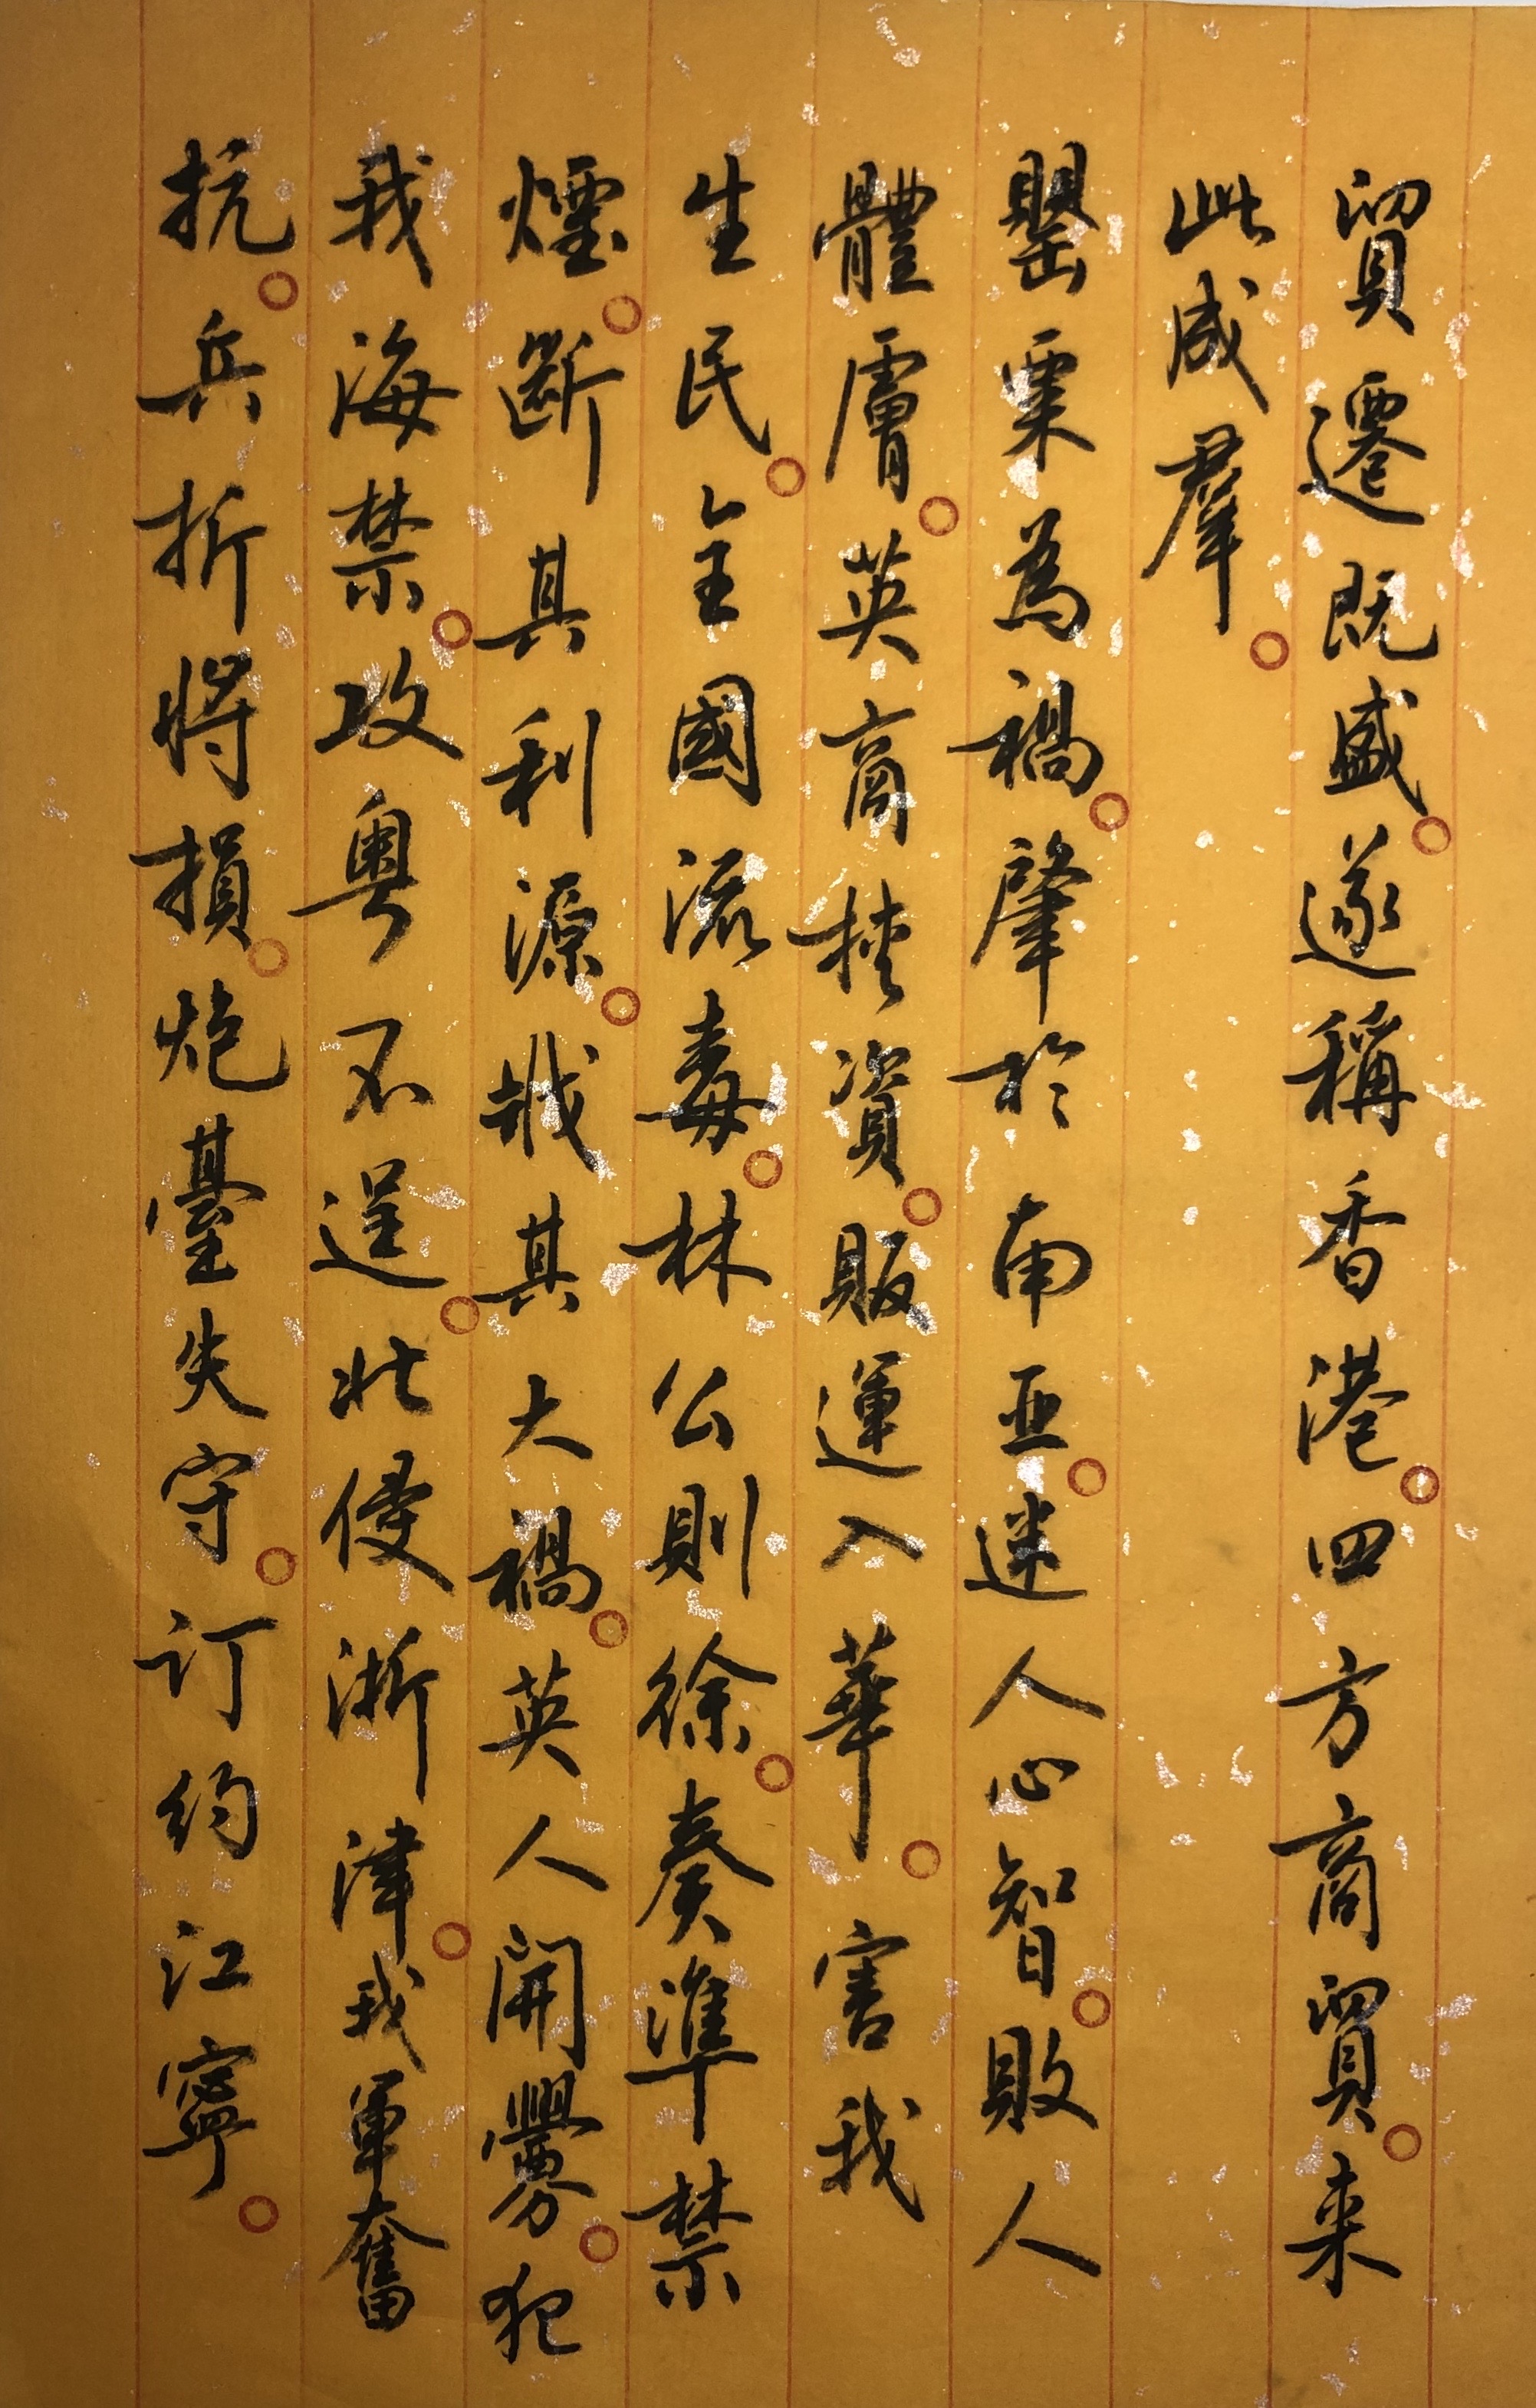 貿遷既盛。遂稱香港。四方商貿。来
此成羣。
罌粟為禍。肇於南亚。迷人心智。敗人
體膚。英商挟資。販運入華。害我
生民。全國流毒。林公則徐。奏準禁
煙。断其利源。戢其大禍。英人開釁。犯
我海禁。攻粤不逞。北侵浙津。我軍奮
抗。兵折將損。炮臺失守。订约江寧。